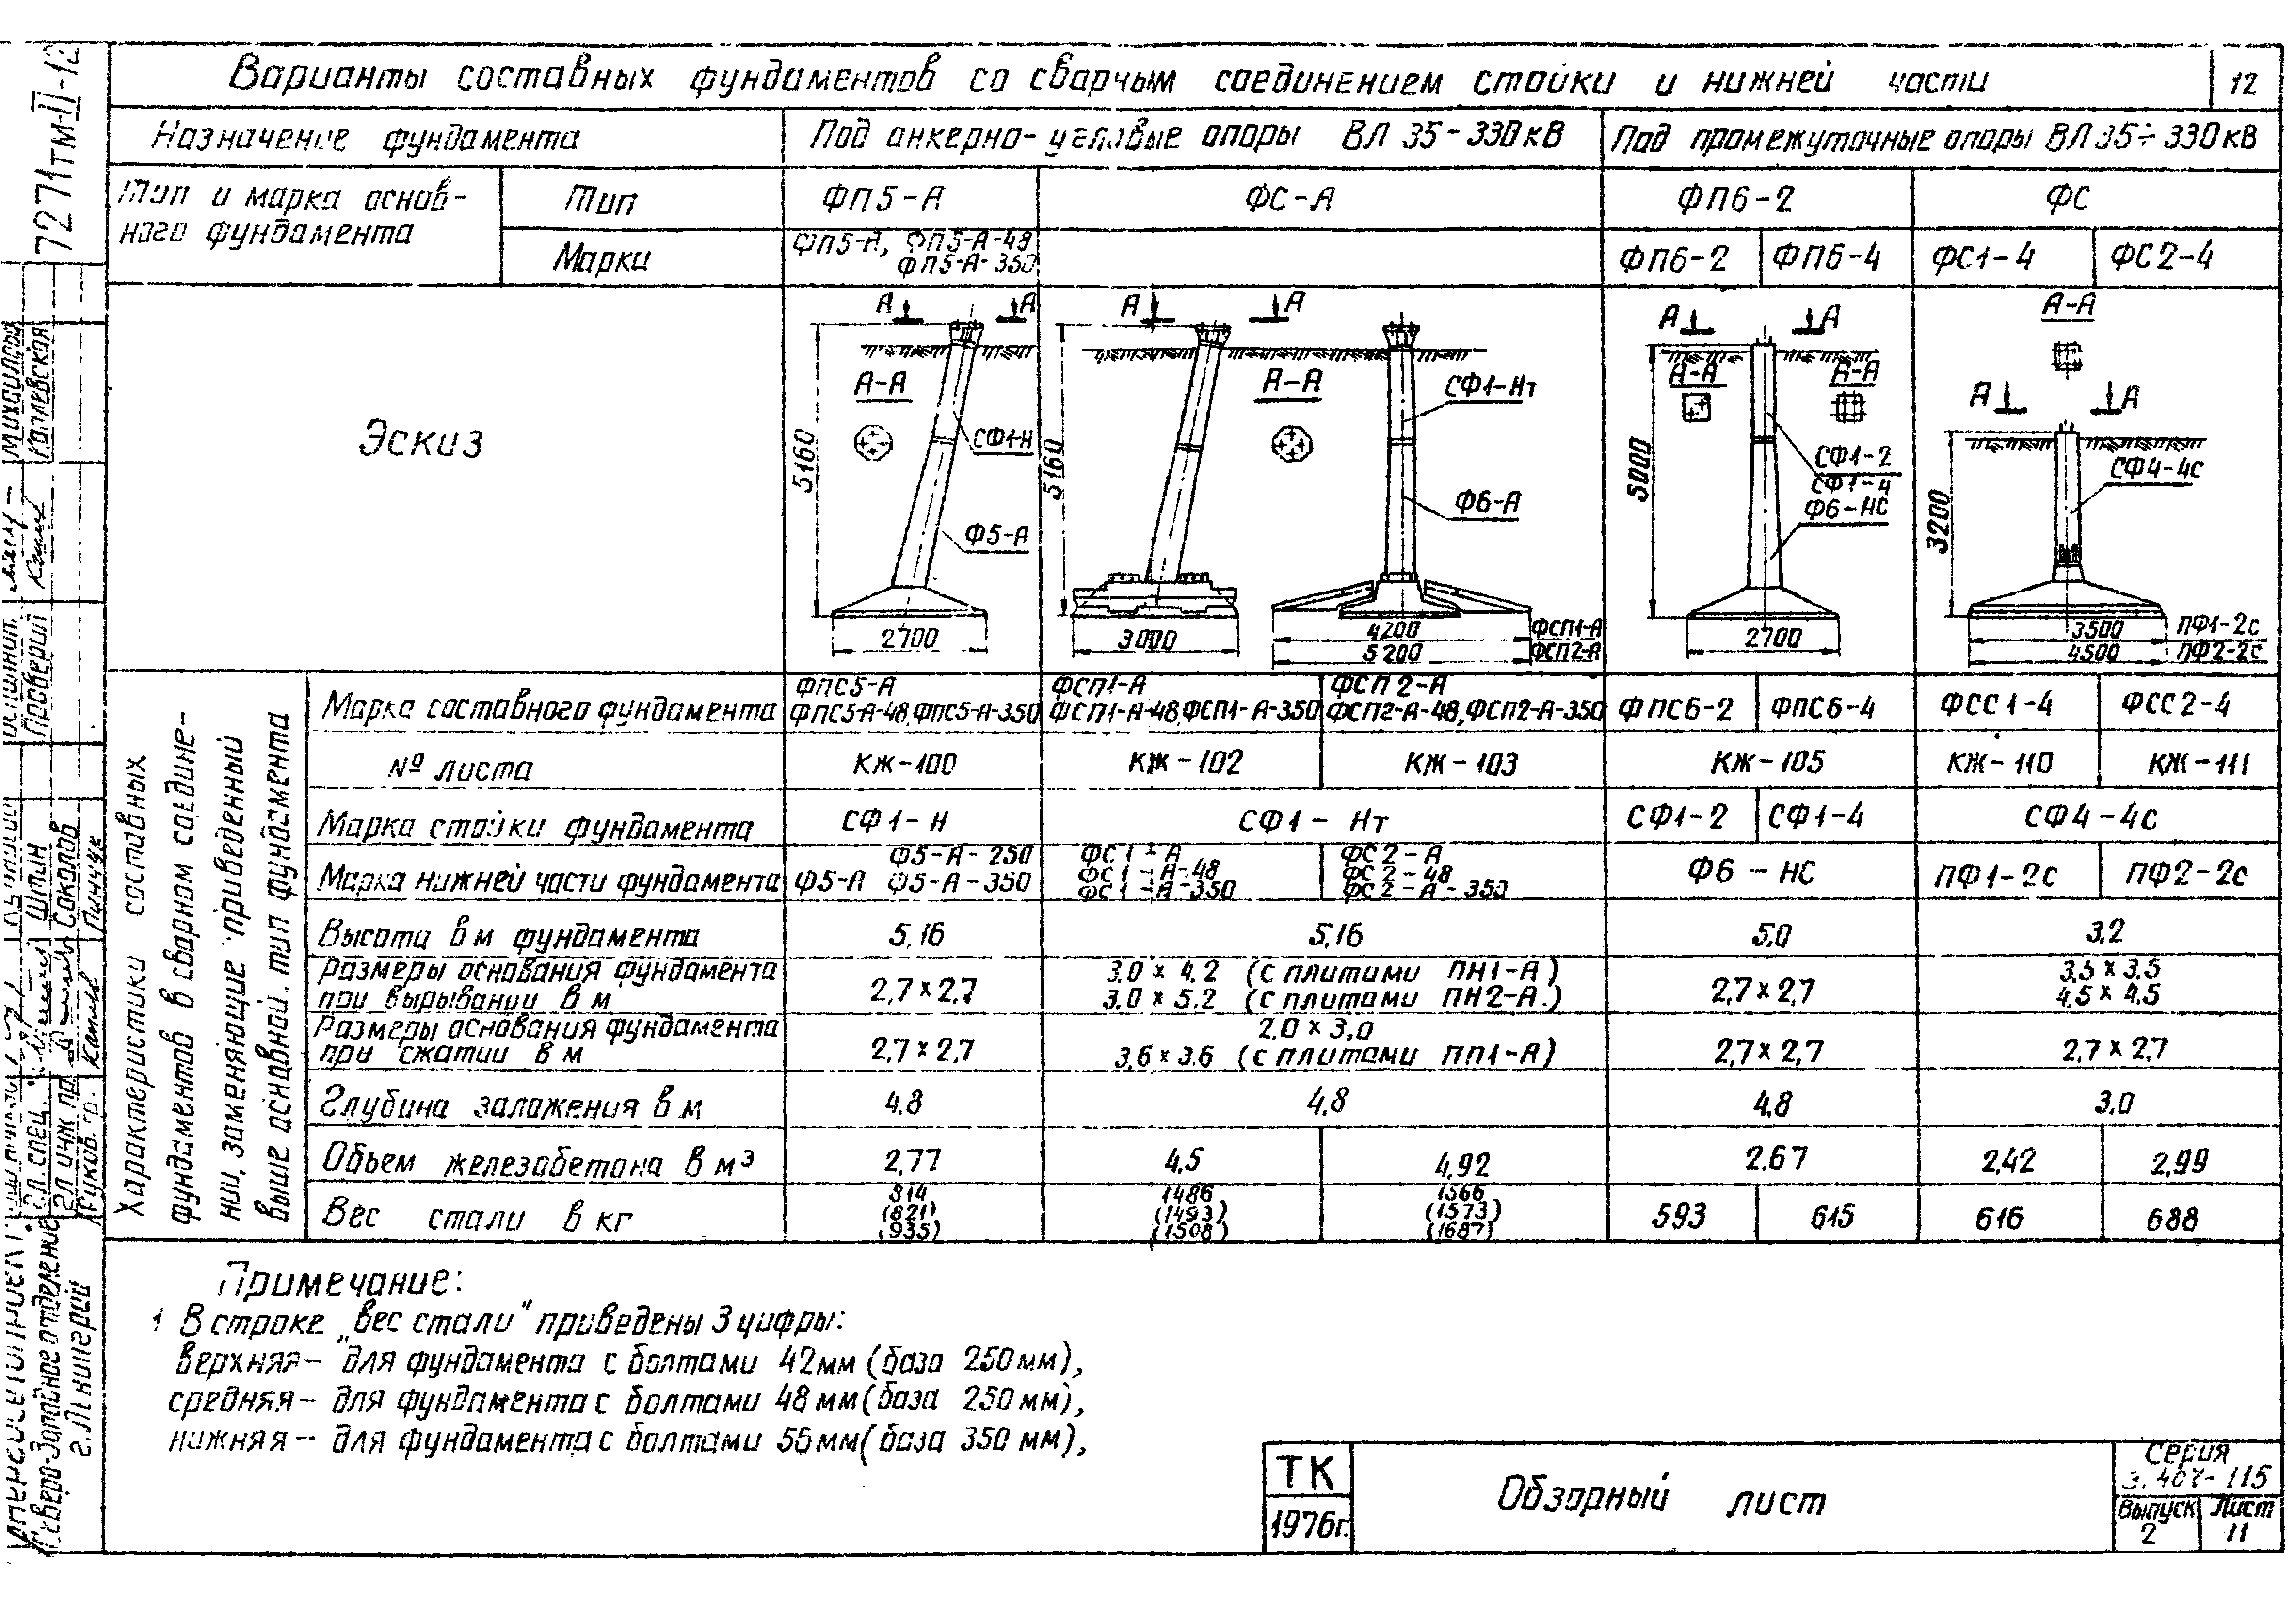 Варианты составных фундаментов со сварным соединением стойки и нижней части
12
Назначение фундамента
Под анкерно-угловые опоры ВЛ 35-330кВ
Под промежуточные опоры ВЛ 35÷330кВ
Тип и марка основ-
ного фундамента
Тип
ФП5-А
ФС-А
ФП6-2
ФС
Марки
ФП5-А, ФП5-А-48
ФП5-А-350
ФП6-2
ФП6-4
ФС1-4
ФС2-4
Эскиз
А А
А-А
5160
СФ1-Н
Ф5-А
2700
А А
А-А
5160
СФ1-Нт
Ф6-А
3000
4200 ФСП1-А
5200 ФСП2-А
А А
А-А А-А
5000
СФ1-2
СФ1-4
Ф6-НС
2700
А-А
А А
3200
СФ4-4с
3500 ПФ1-2с
4500 ПФ2-2с
Характеристики составных
фундаментов в сварном соедине-
нии, заменяющие приведенный
выше основной тип фундамента
Марка составного фундамента
ФПС5-А
ФПС5-А-48, ФПС5-А-350
ФСП1-А
ФСП1-А-48, ФСП1-А-350
ФСП2-А
ФСП2-А-48, ФСП2-А-350
ФПС6-2
ФПС6-4
ФСС1-4
ФСС2-4
№ листа
КЖ-100
КЖ-102
КЖ-103
КЖ-105
КЖ-110
КЖ-111
Марка стойки фундамента
СФ1-Н
СФ1-Нт
СФ1-2
СФ1-4
СФ4-4с
Марка нижней части фундамента
Ф5-А
Ф5-А-250
Ф5-А-350
ФС1-А
ФС1-А-48
ФС1-А-350
ФС2-А
ФС2-48
ФС2-А-350
Ф6-НС
ПФ1-2с
ПФ2-2с
Высота в м фундамента
5,16
5,16
5,0
3,2
Размеры основания фундамента
при вырывании в м
2,7×2,7
3.0×4.2 (с плитами ПН1-А)
3.0×5.2 (с плитами ПН2-А.)
2,7×2,7
3.5×3.5
4.5×4.5
Размеры основания фундамента
при сжатии в м
2,7×2,7
2.0×3,0
3.6×3.6 (с плитами ПП1-А)
2,7×2,7
2,7×2,7
Глубина заложения в м
4.8
4,8
4,8
3.0
Объем железобетона в м³
2,77
4,5
4,92
2.67
2,42
2,99
Вес стали в кг
814
(821)
(935)
1486
(1493)
(1508)
1566
(1573)
(1687)
593
615
616
688
Примечание:
1 В строке „вес стали" приведены 3 цифры:
верхняя- для фундамента с болтами 42мм (база 250мм),
средняя- для фундамента с болтами 48мм (база 250мм),
нижняя- для фундамента с болтами 56мм (база 350 мм),
ТК
1976г.
Обзорный лист
Серия
3.407-115
Выпуск
2
Лист
11
7271тм-II-12
Проверил
Гл. спец.
Штин
Гл инж пр
Соколов
Руков. гр.
Пинчук
Северо-Западное отделение
г. Ленинград